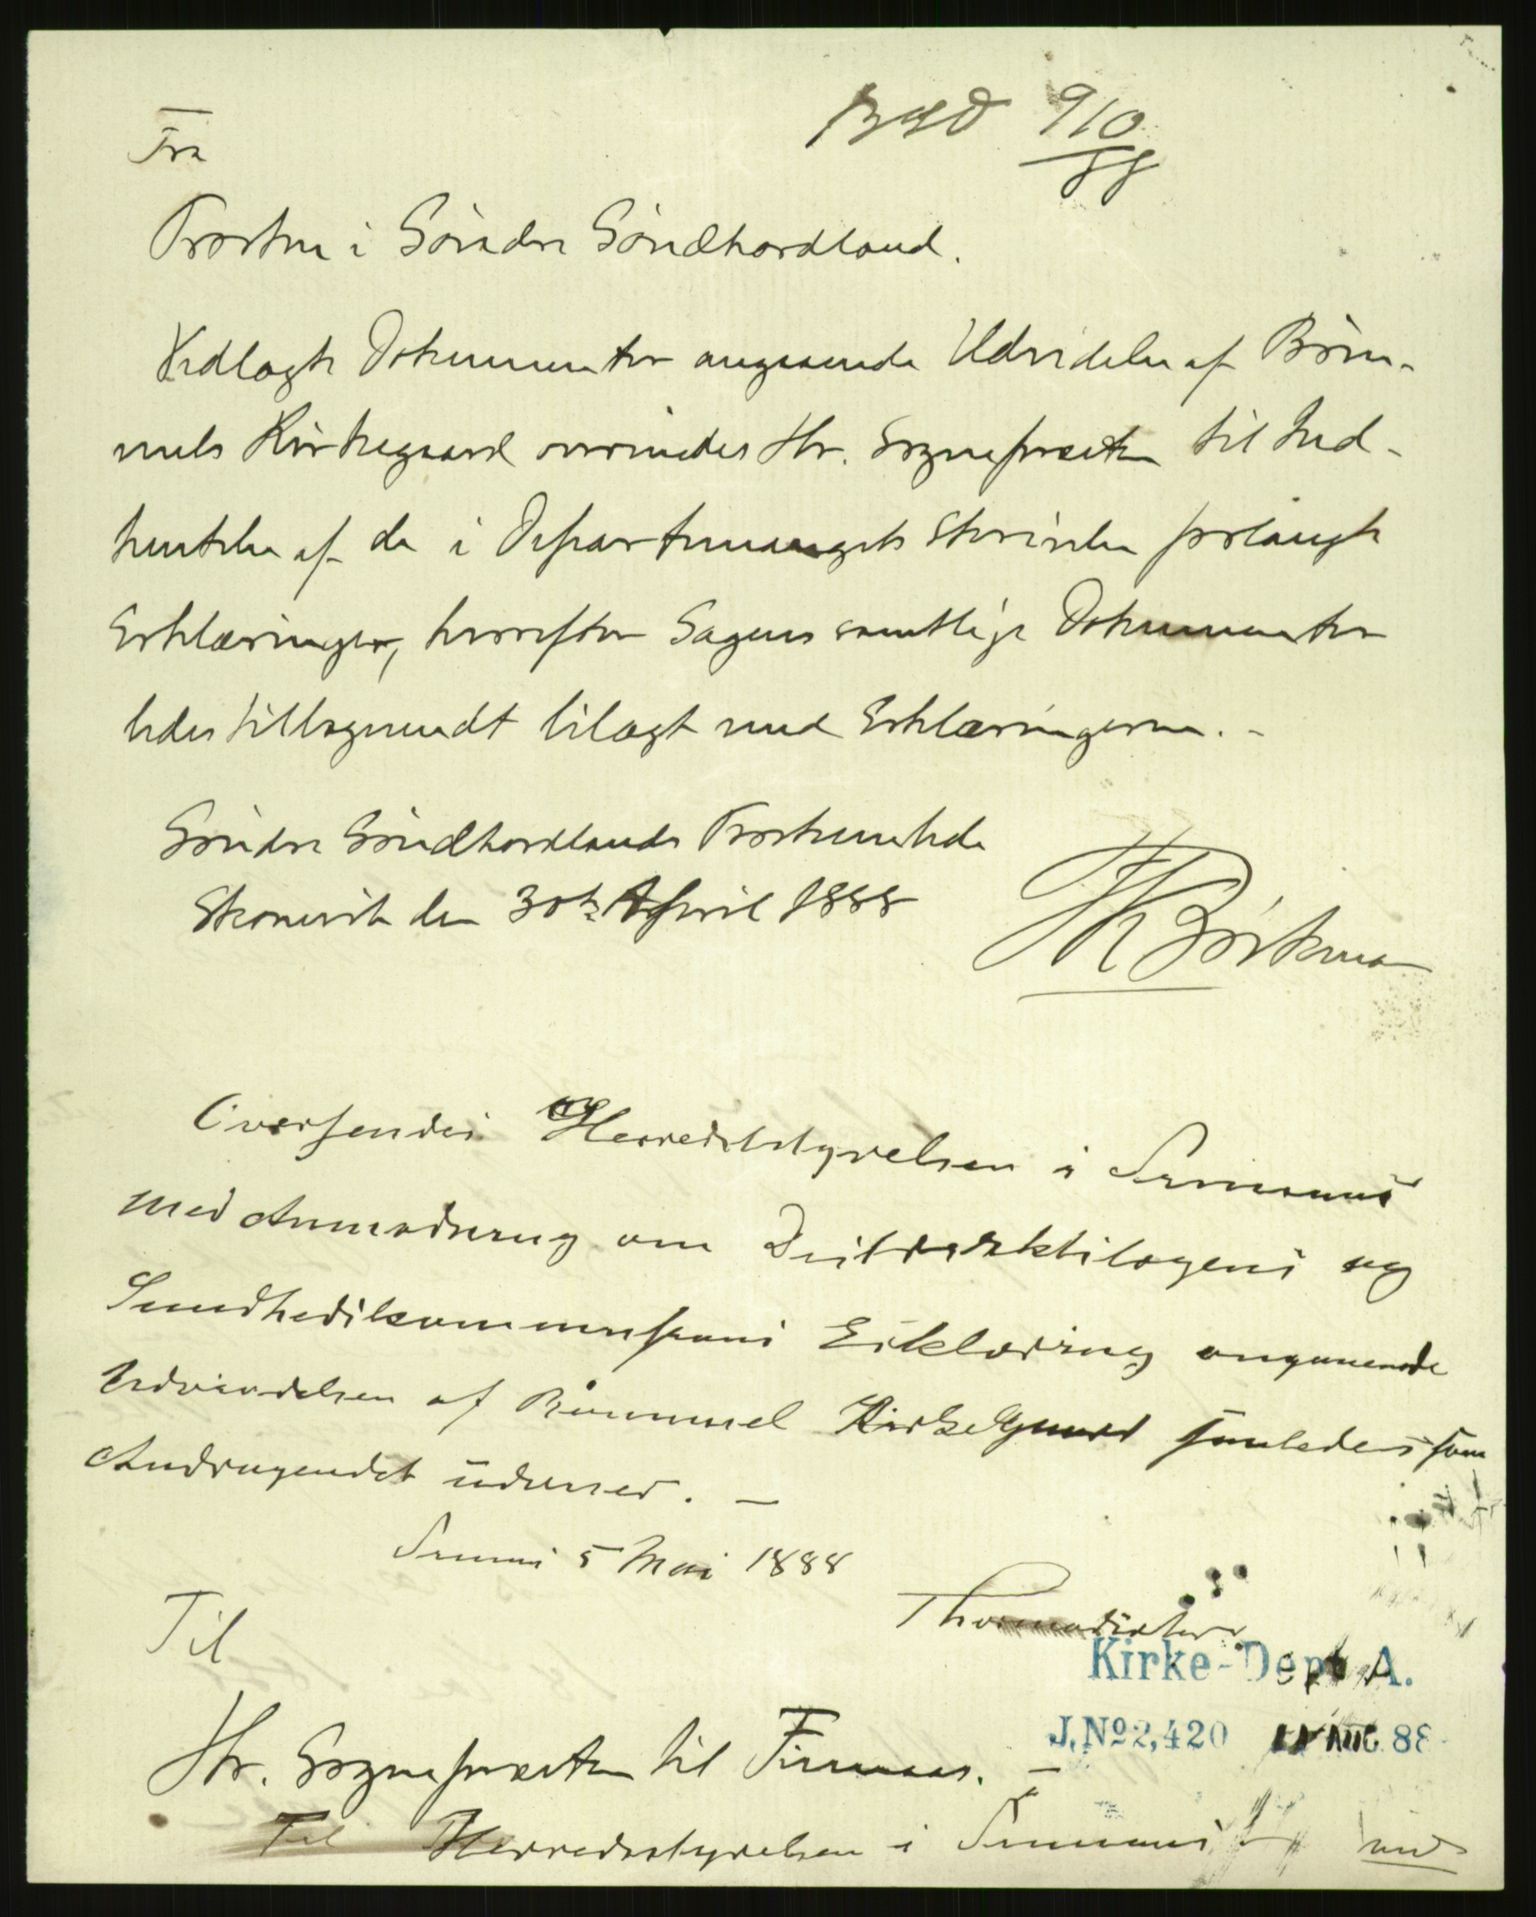 BSD 910/88
Fra
Provsten i Søndre Søndhordland.
Vedlagte Dokumenter angaaende Udvidelse af Bøm-
mels Kirkegaard oversendes Hr. Sognepresten til Ind-
hentelse af de i Departementets Skrivelse forlangte
Erklæringer, hvorefter Sagens samtlige Dokumenter
bedes tilbagesendt bilagt med Erklæringerne. -
Søndre Søndhordlands Provstembede
Skonevik den 30te April 1888
Børkman
Oversendes Herredsstyrelsen i Finnaas
med Anmodning om Distriktslægens og
Sundhedskommissions Erklæring angaaende
Udvidelsen af Bømmel Kirkegaard saaledes som
Andragendet udviser. -
Finnaas 5 Mai 1888
Til
Kirke-Dept A.
J. No 2,420 AUG 88
Hr. Sognepresten til Finnaas. -
Til Herredsstyrelsen i Finnaas